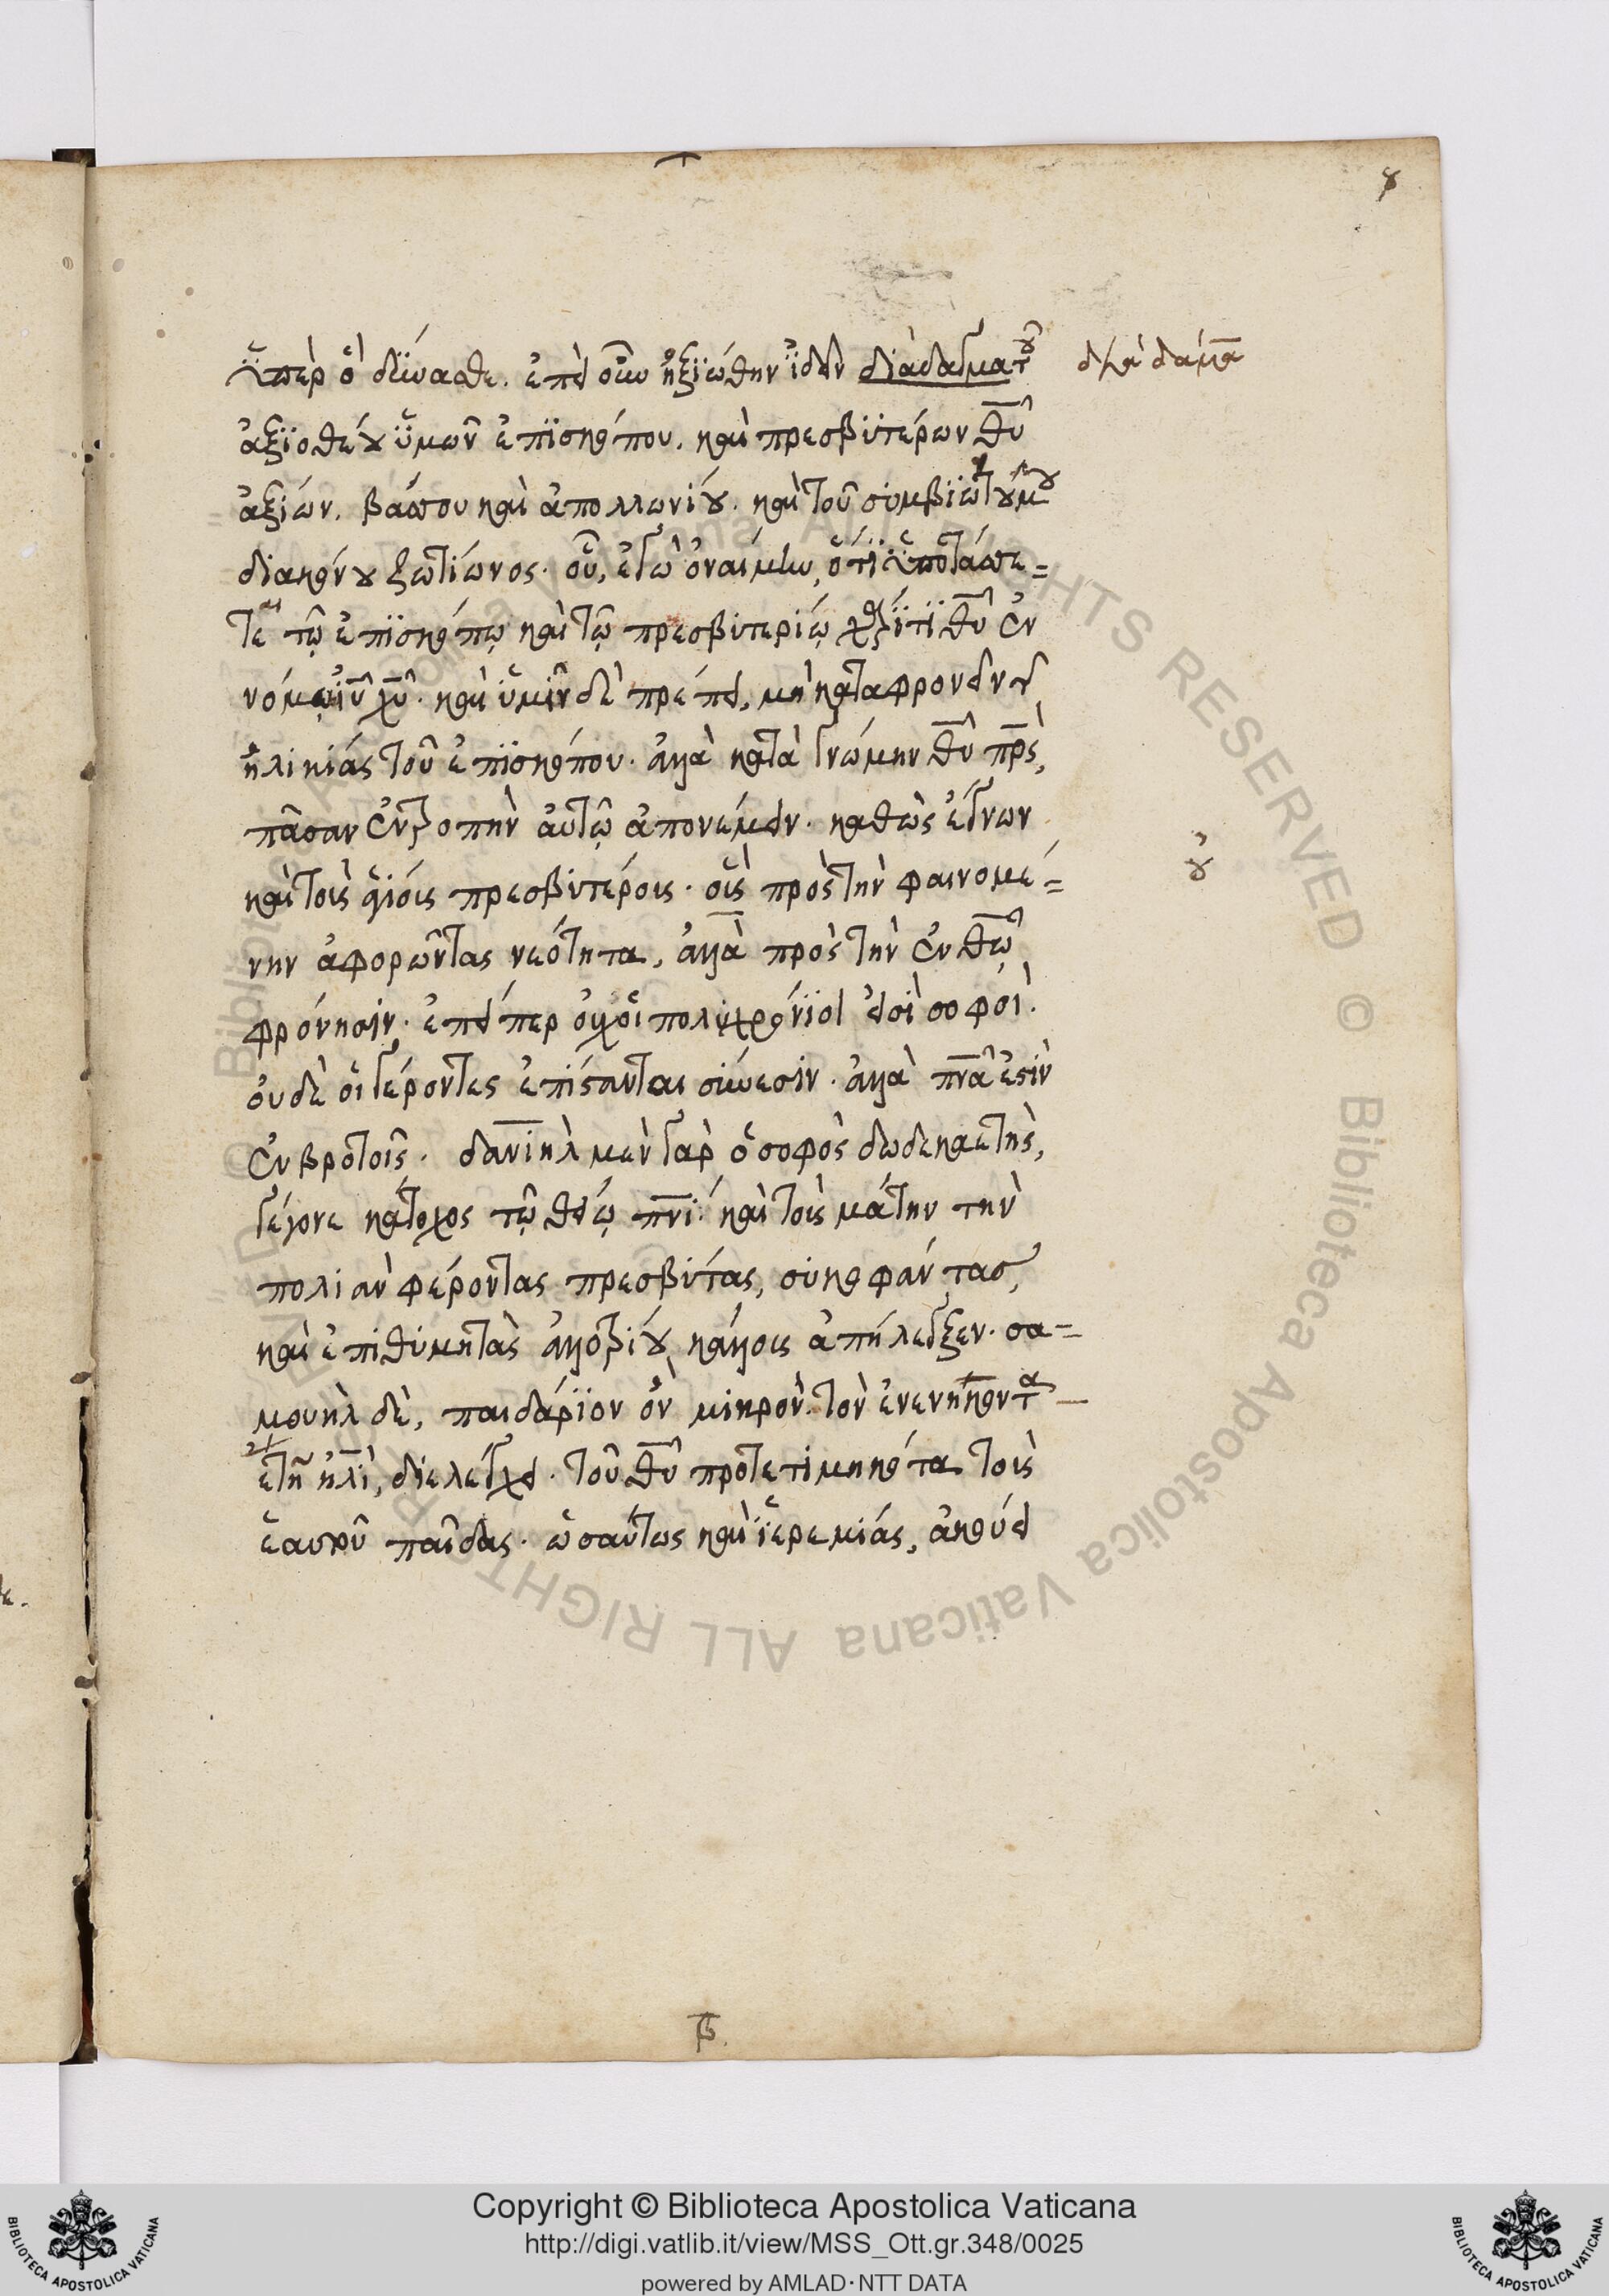 ὑπὲρ ὃ δύνασθε. ἐπεὶ οὖν ἠξιώθην ἰδεῖν διὰ δαγματοῦ
διὰ δαμᾶ
ἀξιοθέου ὑμῶν ἐπισκόπου. καὶ πρεσβυτέρων θ̅υ̅
ἀξίων. βάσσου καὶ ἀπολλωνίου. καὶ τοῦ συμβιώτου μου
διακόνου ζωτίωνος. οὗ, ἐγὼ ὀναίμην, ὅτι ὑποτάσσε=
ται τῷ ἐπισκόπῳ καὶ τῷ πρεσβυτερίῳ χάριτι θ̅υ̅ ἐν
νόμῳ ι̅υ̅ χ̅υ̅. καὶ ὑμῖν δὲ πρέπει, μὴ καταφρονεῖν τῆς
ἡλικίας τοῦ ἐπισκόπου. ἀλλὰ κατὰ γνώμην θ̅υ̅ π̅ρ̅ς̅,
πᾶσαν ἐντροπὴν αὐτῷ ἀπονέμειν. καθὼς ἔγνων
καὶ τοὺς ἁγίοις πρεσβυτέροις. οἷς πρὸς τὴν φαινομέ=
οὐ
νην ἀφορῶντας νεότητα, ἀλλὰ πρὸς τὴν ἐν θ̅ῷ̅
φρόνησιν. ἐπείπερ οὐχ οἱ πολυχρόνιοι εἰσὶ σοφοὶ.
οὐδὲ οἱ γέροντες ἐπίστανται σύνεσιν. ἀλλὰ π̅ν̅α̅ ἐστὶν
ἐν βροτοῖς. δανιὴλ μὲν γὰρ ὁ σοφὸς δωδεκαετὴς,
γέγονε κάτοχος τῷ θείῳ π̅ν̅ι̅. καὶ τοὺς μάτην τὴν
πολιὰν φέροντας πρεσβύτας, συκοφάντας,
καὶ ἐπιθυμητὰς ἀλλοτρίου κάλλους ἀπήλεγξεν. σα=
μουὴλ δὲ, παιδάριον ὂν μικρὸν. τὸν ἐνενηκοντα
ετῆ ἠλὶ, διελέγχει. τοῦ θ̅υ̅ προτετιμηκότα τοὺς
ἑαυτοῦ παῖδας. ὡσαύτως καὶ ἱερεμίας, ἀκούει